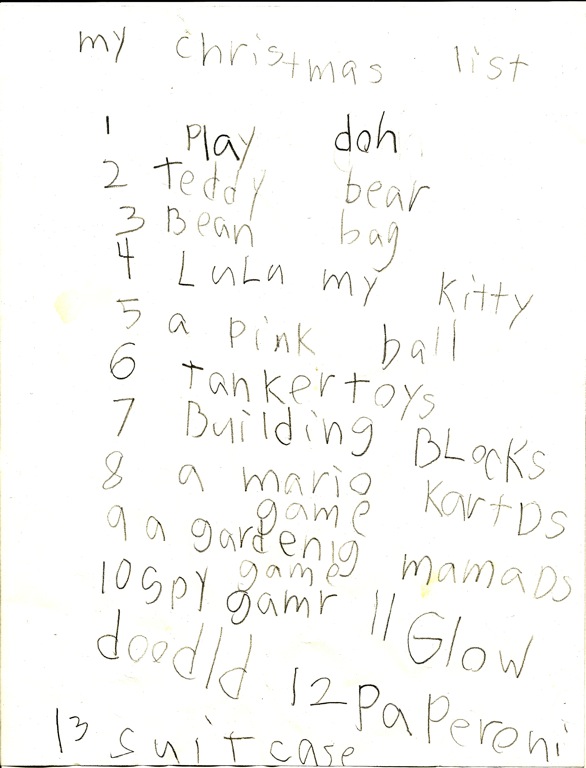 my christmas list
1 Play doh
2 Teddy bear
3 Bean bag
4 LuLu my kitty
5 a pink ball
6 tankertoys
7 Building BLocKs
8 a mario KartDs
game
9 a gardenig mamaDs
game
10 spy gamr 11 Glow
doodld 12 PaPeroni
13 suitcase